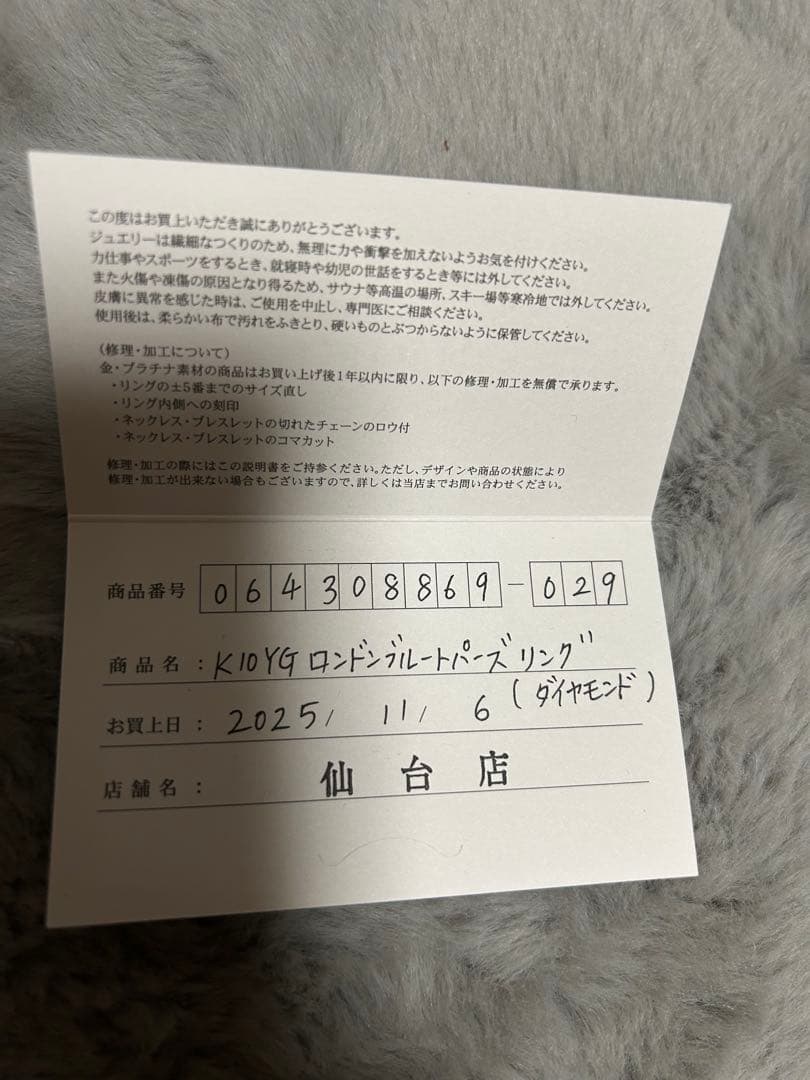 この度はお買上いただき誠にありがとうございます。
ジュエリーは繊細なつくりのため、無理に力や衝撃を加えないようお気を付けください。
力仕事やスポーツをするとき、就寝時や幼児の世話をするとき等には外してください。
また火傷や凍傷の原因となり得るため、サウナ等高温の場所、スキー場等寒冷地では外してください。
皮膚に異常を感じた時は、ご使用を中止し、専門医にご相談ください。
使用後は、柔らかい布で汚れをふきとり、硬いものとぶつからないように保管してください。
(修理・加工について)
金・プラチナ素材の商品はお買い上げ後1年以内に限り、以下の修理・加工を無償で承ります。
・リングの±5番までのサイズ直し
・リング内側への刻印
・ネックレス・ブレスレットの切れたチェーンのロウ付
・ネックレス・ブレスレットのコマカット
修理・加工の際にはこの説明書をご持参ください。ただし、デザインや商品の状態により
修理・加工が出来ない場合もございますので、詳しくは当店までお問い合わせください。
商品番号 064308869-029
商品名：K10YG ロンドンブルートパーズ リング
(ダイヤモンド)
お買上日：2025/ 11/ 6
店舗名：仙台店